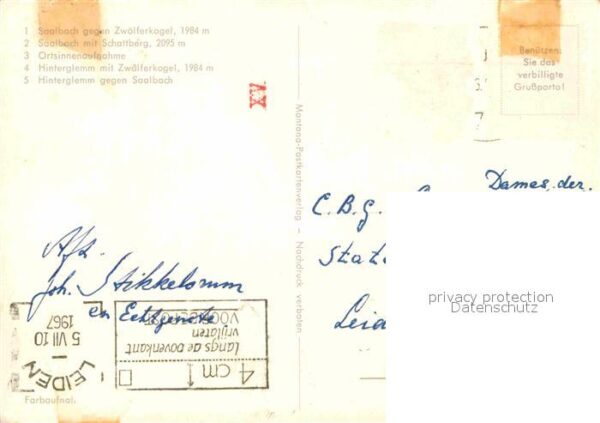 1 Saalbach gegen Zwölferkogel, 1984 m
2 Saalbach mit Schattberg, 2095 m
3 Ortsinnenaufnahme
4 Hinterglemm mit Zwölferkogel, 1984 m
5 Hinterglemm gegen Saalbach
Benützen
Sie das
verbilligte
Grußporto!
Montana-Postkartenverlag – Nachdruck verboten
Dames, der
C.B.G.
Stat
Leid
privacy protection
Datenschutz
Afz.
Joh. Stikkelorum
en Echtgenote
4 cm
langs de bovenkant
vrijlaten
LEIDEN
5 VII 10
1967
Farbaufnat.